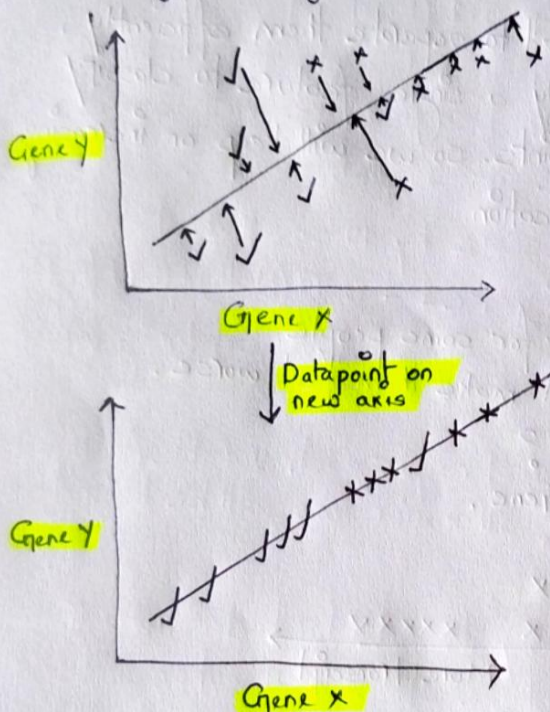 Gene Y
Gene x
Datapoint on
new axis
Gene Y
Gene x